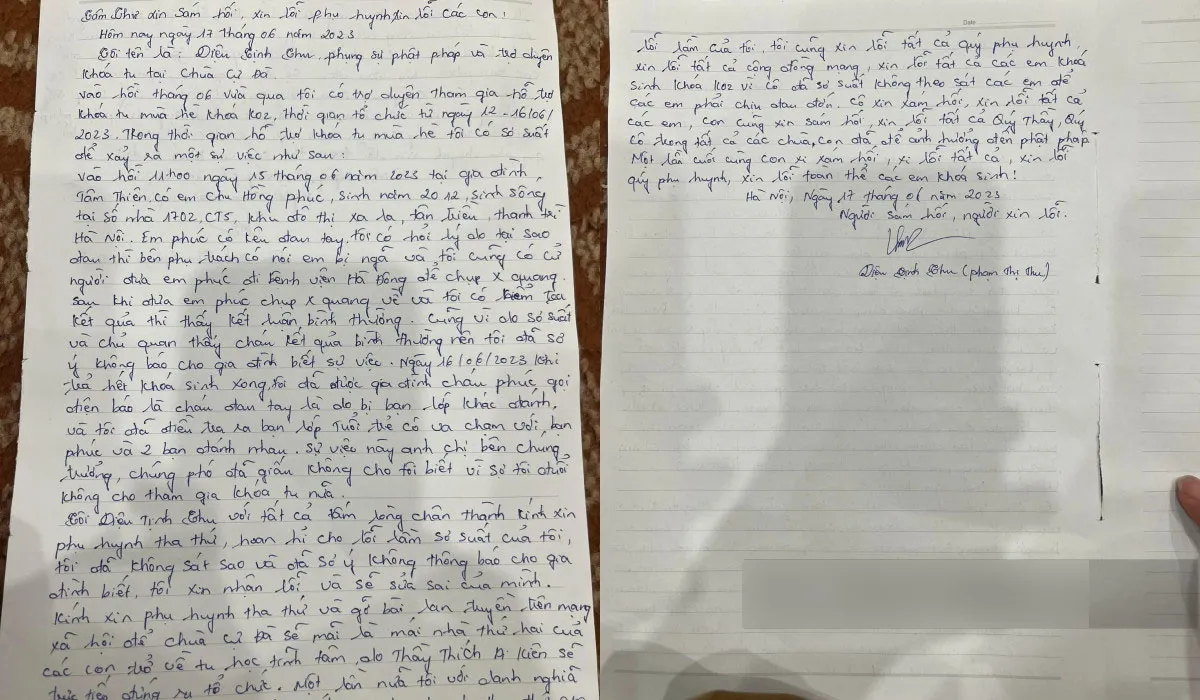 Tâm Thư xin sám hối, xin lỗi phụ huynh xin lỗi các con!
Hôm nay ngày 17 tháng 06 năm 2023
Tôi tên là: Diệu Tịnh Thu, phụng sự phật pháp và trợ duyên
khóa tu tại Chùa Cự Đà.
vào hồi tháng 06 vừa qua tôi có trợ duyên tham gia hỗ trợ
khóa tu mùa hè khóa K02, thời gian tổ chức từ ngày 12-16/06/
2023. Trong thời gian hỗ trợ khóa tu mùa hè tôi có sơ suất
để xảy ra một sự việc như sau:
vào hồi 11h00 ngày 15 tháng 06 năm 2023 tại gia đình,
Tâm Thiên, có em Chu Hồng phúc, sinh năm 2012, sinh sống
tại số nhà 1702, CT5, khu đô thị xa la, tân triều, thanh trì
Hà Nội. Em phúc có kêu đau tay, tôi có hỏi lý do tại sao
đau thì bên phụ trách có nói em bị ngã và tôi cũng có cử
người đưa em phúc đi bệnh viện Hà Đông để chụp X quang.
sau khi đưa em phúc chụp X quang về và tôi có kiểm tra
kết quả thì thấy kết luận bình thường. Cũng vì do sơ suất
và chủ quan thấy cháu kết quả bình thường nên tôi đã sơ
ý không báo cho gia đình biết sự việc. Ngày 16/06/2023 khi
trả hết khóa sinh xong, tôi đã được gia đình cháu phúc gọi
điện báo là cháu đau tay là do bị bạn lớp khác đánh,
và tôi đã điều tra ra bạn lớp Tuổi trẻ có va chạm với bạn
phúc và 2 bạn đánh nhau. Sự việc này anh chị bên chúng
trưởng, chúng phó đã giấu không cho tôi biết vì sợ tôi đuổi
không cho tham gia khóa tu nữa.
Tôi Diệu Tịnh Thu với tất cả tấm lòng chân thành kính xin
phụ huynh tha thứ, hoan hỉ cho lỗi lầm sơ suất của tôi,
tôi đã không sát sao và đã sơ ý không thông báo cho gia
đình biết, tôi xin nhận lỗi và sẽ sửa sai của mình.
Kính xin phụ huynh tha thứ và gỡ bài lan truyền trên mạng
xã hội để chùa cự đà sẽ mãi là mái nhà thứ hai của
các con trở về tu học tịnh tâm, do Thầy Thích Kiên sẽ
trực tiếp đứng ra tổ chức. Một lần nữa tôi với danh nghĩa
Date
lỗi lầm của tôi, tôi cũng xin lỗi tất cả quý phụ huynh,
xin lỗi tất cả cộng đồng mạng, xin lỗi tất cả các em khóa
sinh khóa K02 vì cô đã sơ suất không theo sát các em để
các em phải chịu đau đớn. Cô xin xám hối, xin lỗi tất cả
các em, con cũng xin sám hối, xin lỗi tất cả Quý Thầy, Quý
cô trong tất cả các chùa, con đã để ảnh hưởng đến phật pháp.
Một lần cuối cùng con xi xám hối, xi lỗi tất cả, xin lỗi
quý phụ huynh, xin lỗi toàn thể các em khóa sinh!
Hà Nội, Ngày 17 tháng 06 năm 2023
Người sám hối, người xin lỗi.
Diệu Tịnh Thu (phạm Thị Thu)